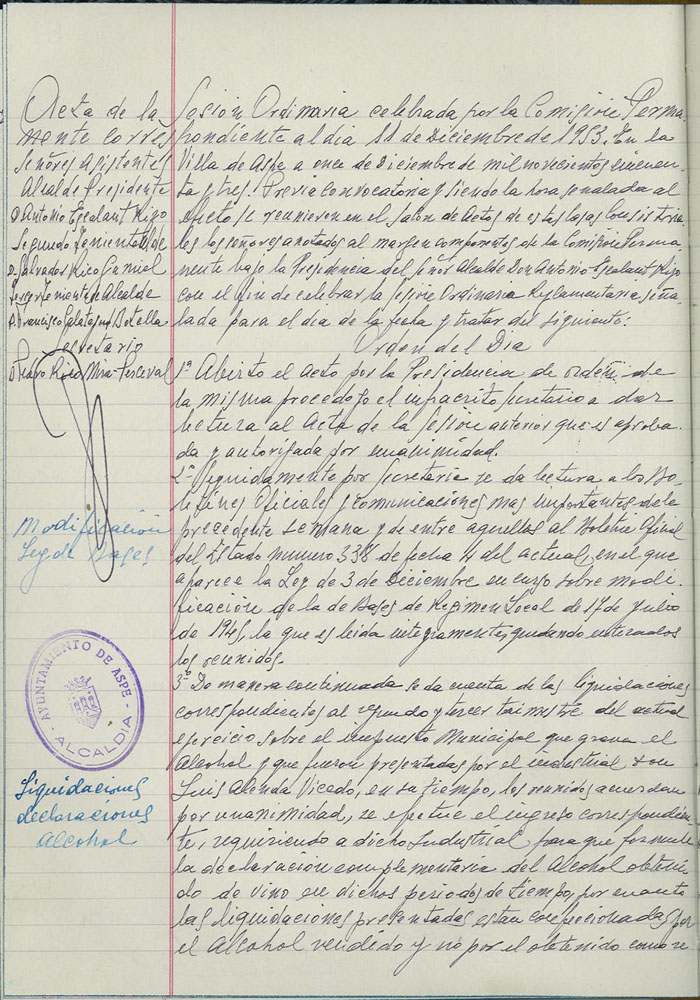 Acta de la Sesión Ordinaria celebrada por la Comisión Perma
nente corres pondiente al dia 11 de Diciembre de 1953. En la
Señores Asistentes
Alcalde Presidente
D. Antonio Escalant Rigo
Segundo Teniente Alcalde
D. Salvador Rico Gumiel
Tercer Teniente de Alcalde
D. Francisco Calatayud Botella
Secretario
Pedro Rico Mira-Perceval
Villa de Aspe a once de Diciembre de mil novecientos cincuen-
ta y tres. Previa convocatoria y siendo la hora señalada al
efecto se reunieren en el Salon de Actos de estas Casas Consistoria-
les los señores anotados al margen componentes de la Comisión Perma-
nente bajo la Presidencia del Señor Alcalde Don Antonio Escalant Rigo
con el fin de celebrar la Sesión Ordinaria Reglamentaria seña-
lada para el dia de la fecha y tratar del siguiente:
Orden del Dia
1º Abierto el acto por la Presidencia de orden de
la misma procedo yo el infrascrito Secretario a dar
lectura al Acta de la Sesión anterior que es aproba-
da y autorizada por unanimidad.
2º Seguidamente por Secretaria se da lectura a los Bo-
letines Oficiales y comunicaciones mas importantes de la
precedente semana y de entre aquellos al Boletin Oficial
del Estado numero 338 de fecha 4 del actual, en el que
aparece la Ley de 3 de Diciembre en curso sobre modi-
ficación de la de Bases de Regimen Local de 17 de Julio
de 1945, la que es leida integramente, quedando enterados
los reunidos.
Modificación
Ley de Bases
3º De manera continuada se da cuenta de las liquidaciones
correspondientes al segundo y tercer trimestre del actual
ejercicio sobre el impuesto Municipal que grava el
Alcohol y que fueron presentadas por el industrial Don
Luis Alenda Vicedo, en su tiempo, los reunidos acuerdan
por unanimidad, se efectue el ingreso correspondien-
te, requiriendo a dicho Industrial para que formule
la declaración complementaria del Alcohol obteni-
do de vino en dichos periodos de tiempo, por cuanto
las liquidaciones presentadas estan confeccionadas por
el Alcohol vendido y no por el obtenido como se
AYUNTAMIENTO DE ASPE
- ALCALDIA -
Liquidaciones
declaraciones
Alcohol